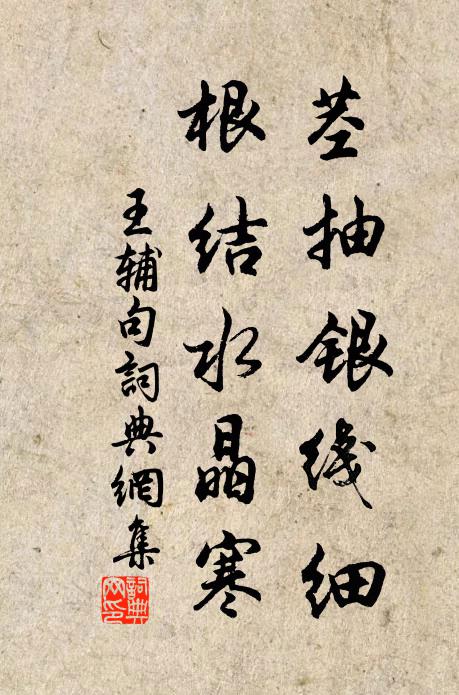 茎抽银线细
根结水晶寒
王辅句詞典網集
詞典网印